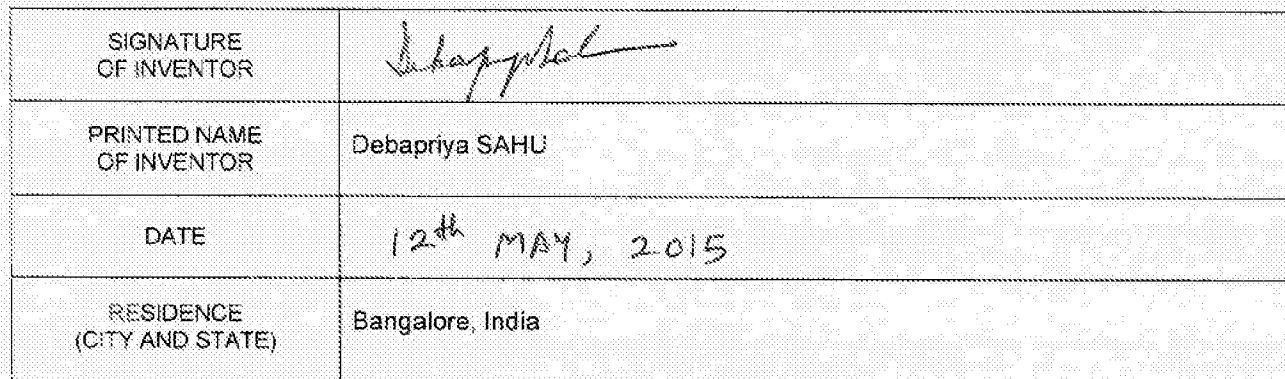 SIGNATURE
OF INVENTOR
PRINTED NAME
OF INVENTOR
Debapriya SAHU
DATE
12th MAY, 2015
RESIDENCE
(CITY AND STATE)
Bangalore, India